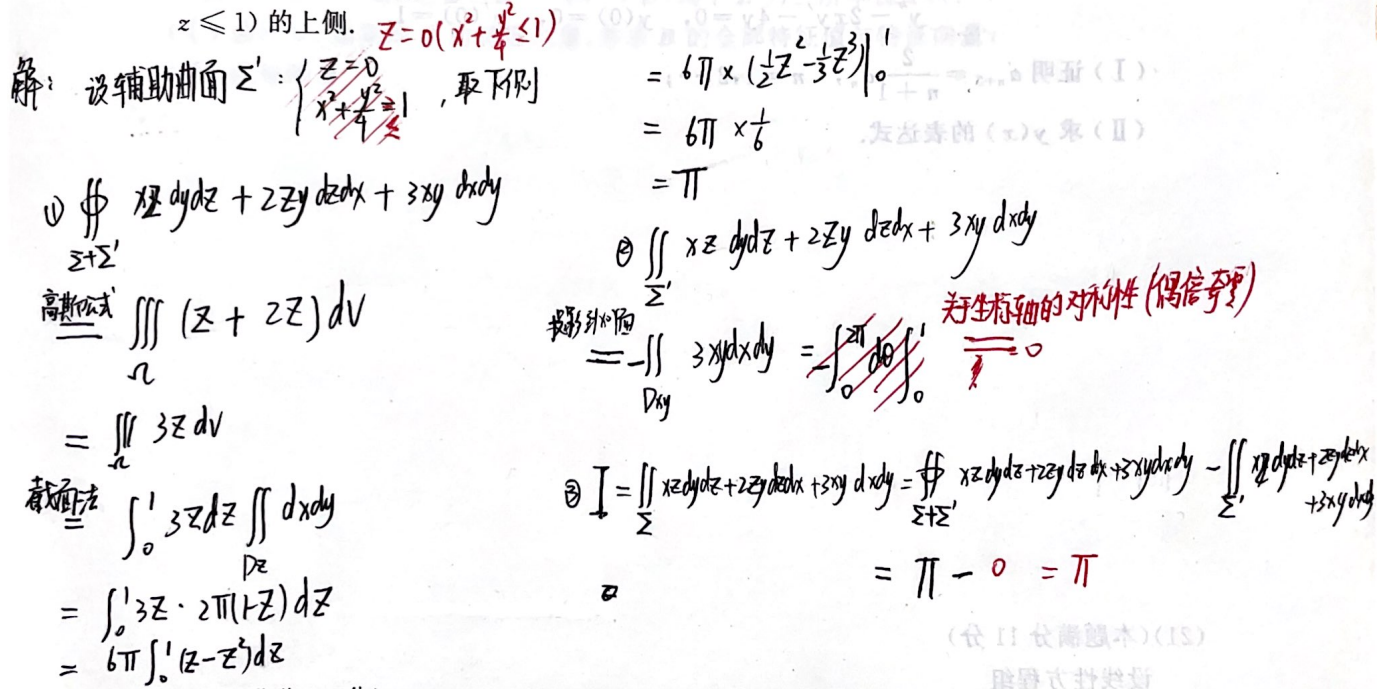 z ≤ 1) 的上侧. z=0(x²+y²/4≤1)
解: 设辅助曲面Σ': { z=0
x²+y²/4≤1 , 取下侧
① ∯ xz dydz + 2zy dzdx + 3xy dxdy
Σ+Σ'
高斯公式
= ∭ (z + 2z) dV
Ω
= ∭ 3z dV
Ω
截面法
= ∫₀¹ 3z dz ∬ dxdy
Dz
= ∫₀¹ 3z · 2π(1-z) dz
= 6π ∫₀¹ (z-z²) dz
= 6π × (1/2 z² - 1/3 z³) |₀¹
= 6π × 1/6
= π
② ∬ xz dydz + 2zy dzdx + 3xy dxdy
Σ'
= -∬ 3xy dxdy = -∫₀^2π dθ ∫₀¹ 关于坐标轴的对称性(偶倍奇零)
Dxy
= 0
③ I = ∬ xz dydz + 2zy dzdx + 3xy dxdy = ∯ xz dydz + 2zy dzdx + 3xy dxdy - ∬ xz dydz + 2zy dzdx
Σ Σ+Σ' Σ' +3xy dxdy
= π - 0 = π
(Ⅰ) 证明
(Ⅱ) 求 y(x) 的表达式.
(21)(本题满分 11 分)
设线性方程组